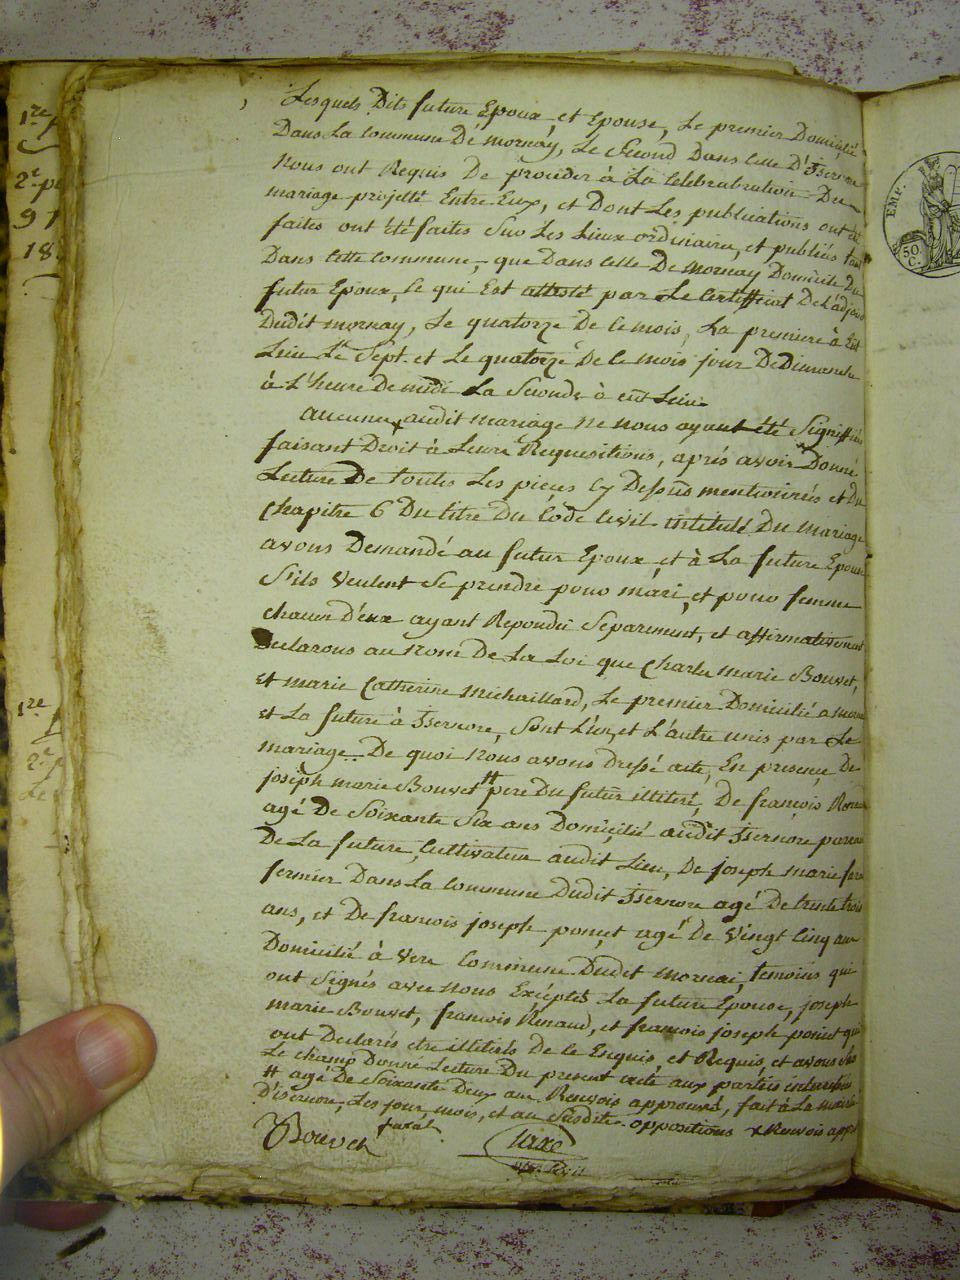 Lesquels Dits future Epoux, et Epouse, Le premier Domicilié
Dans La Commune De mornay, Le Second Dans Celle D'Isernore
Nous ont Requis De procéder à La Celebrabration Du
mariage projetté Entre Eux, et Dont Les publications ont été
faites ont été faites Sur Les Lieux ordinaire, et publiés tant
Dans Cette Commune, que Dans Celle De Mornay Domicile Du
futur Epoux, Ce qui Est attesté par Le Certifficat De L'adjoint
Dudit mornay, Le quatorze De Ce mois, La premiere à Eut
Lieu Le Sept et Le quatorze De Ce mois jour De Dimanche
à L'heure De midi La Seconde à eut Lieu
aucune x audit mariage Ne nous ayant été Signiffiée
faisant Droit à Leurs Requesitions, aprés avoir Donné
Lecture De toutes Les pieces Cy Dessus mentionnées et Du
Chapitre 6 Du titre Du Code Civil intitulé Du mariage
avons Demandé au futur Epoux et à La future Epouse
S'ils Veulent Se prendre pour mari, et pour femme
Chacun D'eux ayant Repondu Separement, et affirmativement
Declarons au Nom De La Loi que Charle marie Bouvet,
Et marie Catherine Michaillard, Le premier Domicilié a mornay
Et La future à Isernore, Sont L'un et L'autre unis par Le
mariage. De quoi Nous avons Dressé acte, En presence De
joseph marie Bouvet # pere Du futur illiteré, De françois Renaud
agé De Soixante Six ans Domicilié audit Isernore
De La future, Cultivateur audit Lieu, De joseph marie
fermier Dans La Commune Dudit Isernore agé De trente trois
ans, et De francois joseph poncet agé De Vingt Cinq ans
Domicilié à Vers Commune Dudit mornai, temoins qui
ont Signés avec Nous Exceptés La future Epouse, joseph
marie Bouvet, francois Renaud, et francois joseph poncet qui
ont Declarés etre illiterés De Ce Enquis, et Requis, et avons Sur
Le Champ Donné Lecture Du present acte aux parties
# agé De Soixante Deux ans Renvois approuvé, fait à La mairie
D'isernore, Les jour, mois, et an Susdits. oppositions x Renvois
Bouvet